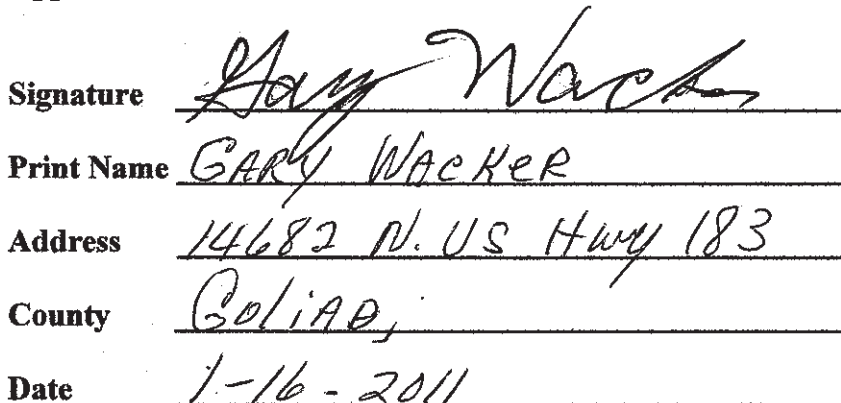 Signature Gary Wacker
Print Name GARY WAcKeR
Address 14682 N. US Hwy 183
County GoliAD,
Date 1-16-2011